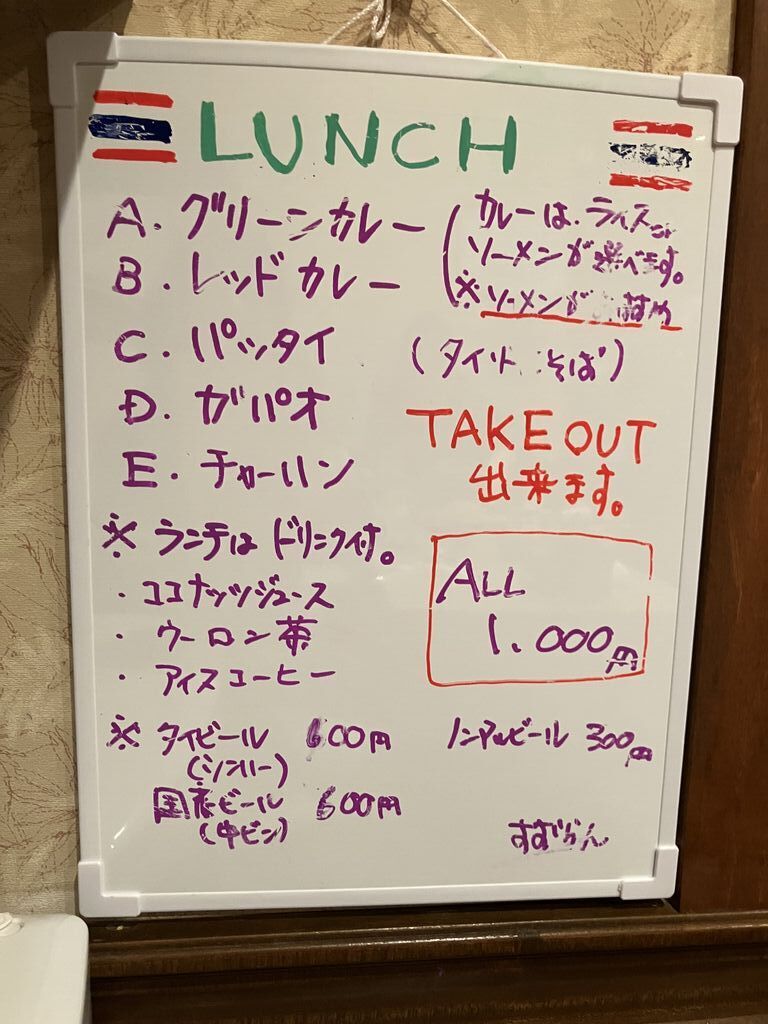 LUNCH
A. グリーンカレー
B. レッドカレー
(カレーは、ライスか
ソーメンが選べます。
※ソーメンがおすすめ
C. パッタイ
(タイ そば)
D. ガパオ
E. チャーハン
TAKE OUT
出来ます。
※ ランチはドリンク付。
・ココナッツジュース
・ウーロン茶
・アイスコーヒー
ALL
1.000円
※ タイビール 600円
(シンハー)
国産ビール 600円
(中ビン)
ノンアルビール 300円
すずらん